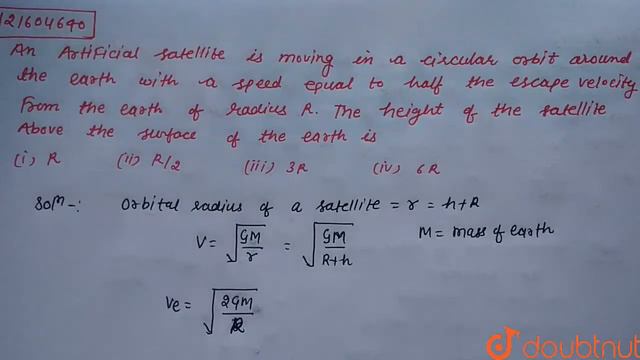 121604640
An Artificial satellite is moving in a circular orbit around
the earth with a speed equal to half the escape velocity
From the earth of radius R. The height of the satellite
Above the surface of the earth is
(i) R (ii) R/2 (iii) 3R (iv) 6R
Solⁿ-: Orbital radius of a satellite = r = h+R
V = √(GM/r) = √(GM/R+h) M = mass of earth
Ve = √(2GM/R)
doubtnut